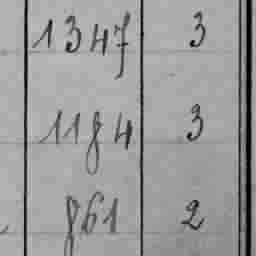 1347 3
1184 3
861 2